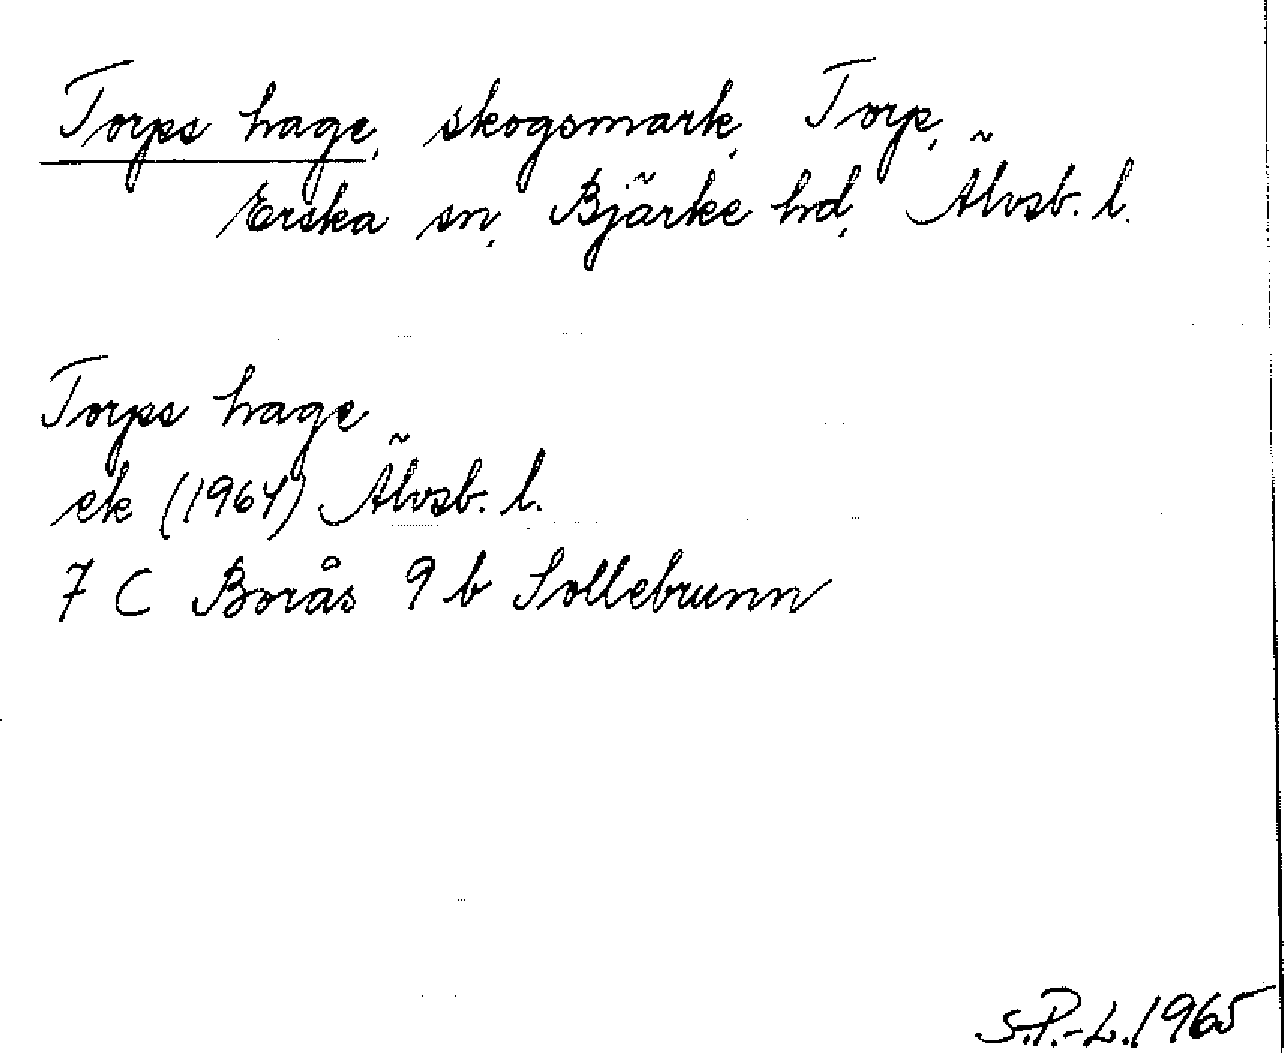 Torps hage, skogsmark, Torp,
Erska sn, Bjärke hd, Älvsb. l.
Torps hage
ek (1964) Älvsb. l.
7 C Borås 9 b Sollebrunn
S.P.-L. 1965